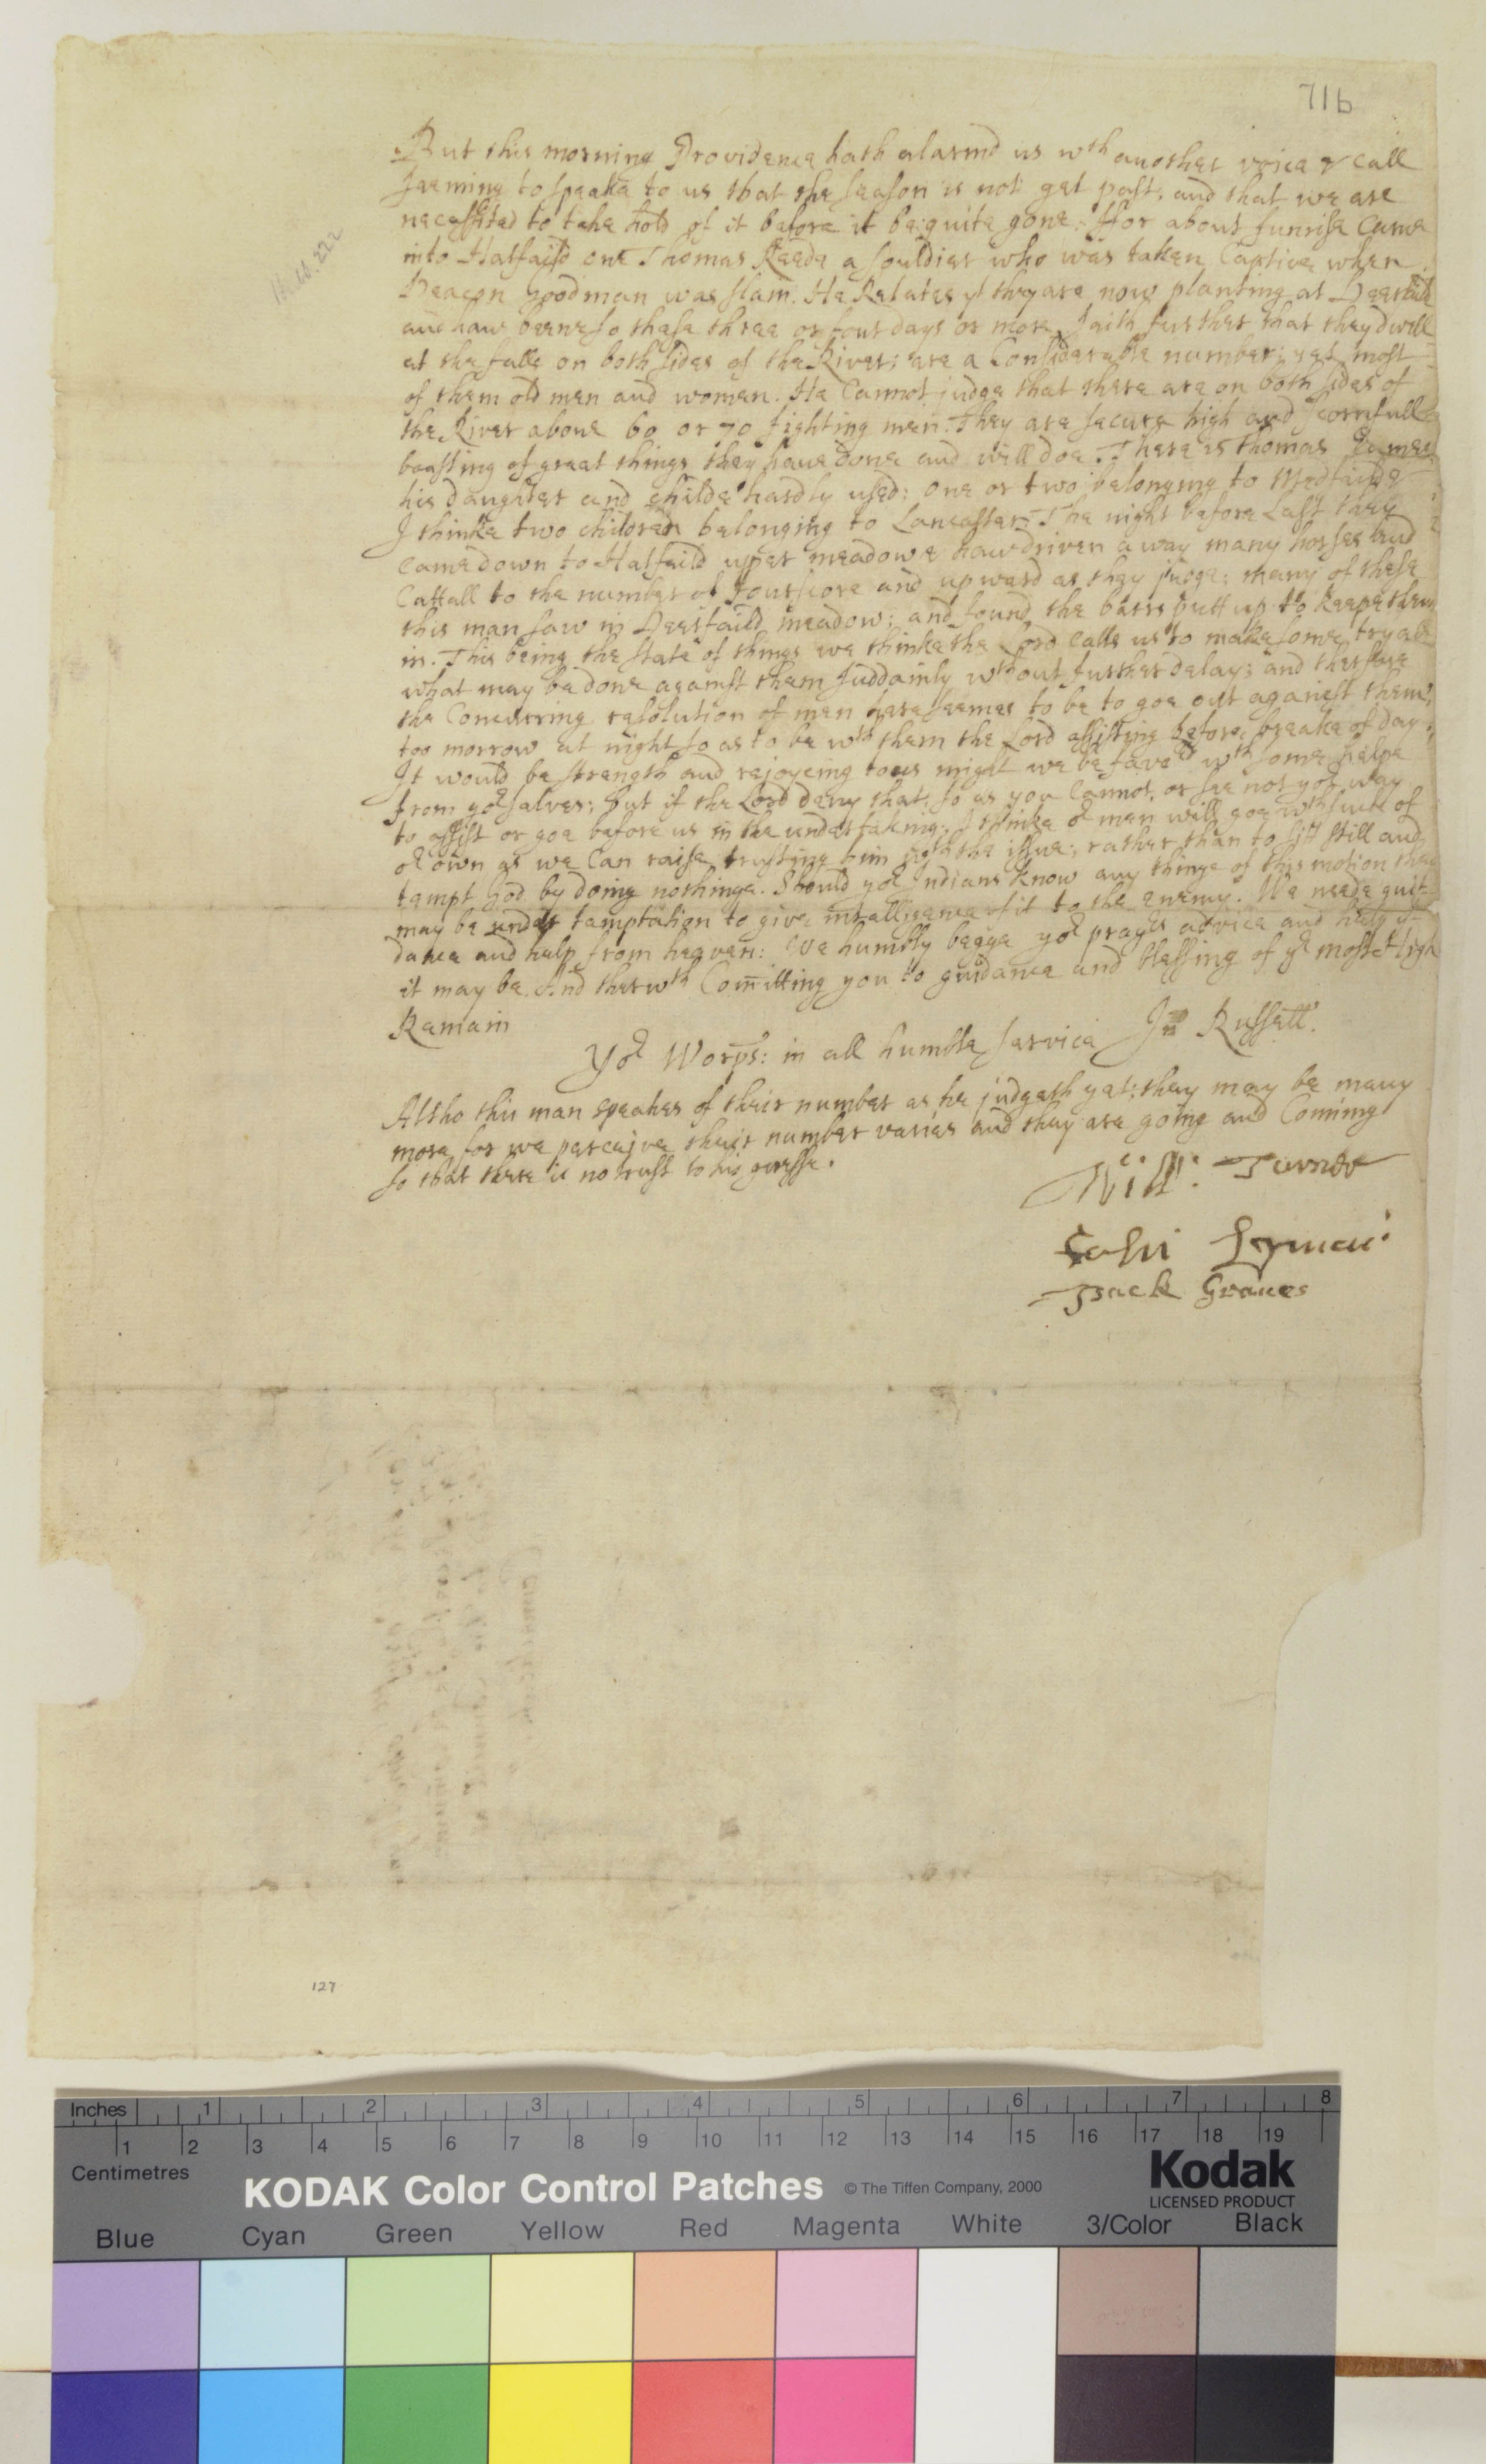 71b
But this morning Providence hath alarmd us wth another voice & call
seeming to speake to us that the season is not yet past, and that we are
necessitated to take hold of it before it be quite gone. ffor about sunrise came
into Hatfeild one Thomas Reede a souldier who was taken Captive when
Deacon goodman was slain. He Relates yt they are now planting at Deerfeild
and haue beene so these three or four days or more, saith further that they dwell
at the falls on both sides of the River; are a Considerable number; yet most
of them old men and women. He Cannot judge that there are on both sides of
the River aboue 60 or 70 fighting men. They are secure high and scornfull
boasting of great things they haue done and will doe. There is Thomas Eames
his daughter and childe hardly used: one or two belonging to Medfeilde
I thinke two children belonging to Lancaster. The night before last they
came down to Hatfeild upper meadow haue driven away many horses and
Cattall to the number of fourscore and upward as they judge; many of these
this man saw in Deerfeild meadow; and found the barrs putt up to keepe them
in. This being the state of things we thinke the Lord calls us to make some tryal
what may be done against them suddainly wthout further delay; and therfore
the Concurring resolution of men here seemes to be to goe out against them
too morrow at night so as to be wth them the Lord assisting before breake of day.
It would be strength and rejoyceing to us might we be favd wth some helpe
from yor selves; but if the Lord deny that, so as you cannot, or see not yor way
to assist or goe before us in the undertaking; I thinke or men will goe wth such of
or own as we can raise trusting him wth the issue; rather than to sitt still and
tempt God by doing nothinge. Should yor Indians know any thinge of this motion they
may be under temptation to give intelligence of it to the enemy. We neede gui-
dance and help from heaven: We humbly begge yor prayrs advice and help if
it may be. And therwth Comitting you to guidance and blessing of ye most High
Remain
Yor Worps: in all humble service Jno Russell.
Altho this man speakes of their number as he judgeth yet: they may be many
more for we perceive their number varies and they are going and Coming
so that there is no trust to his guesse.
Will: Turner
John Lyman
Isack Graues
127
Inches 1 2 3 4 5 6 7 8
1 2 3 4 5 6 7 8 9 10 11 12 13 14 15 16 17 18 19
Centimetres
KODAK Color Control Patches © The Tiffen Company, 2000 Kodak
LICENSED PRODUCT
Blue Cyan Green Yellow Red Magenta White 3/Color Black